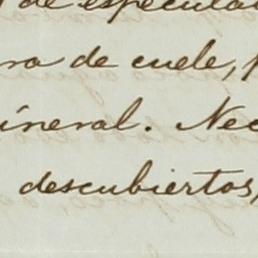 de especula
ra de cuele,
ineral. Nec
descubiertos,